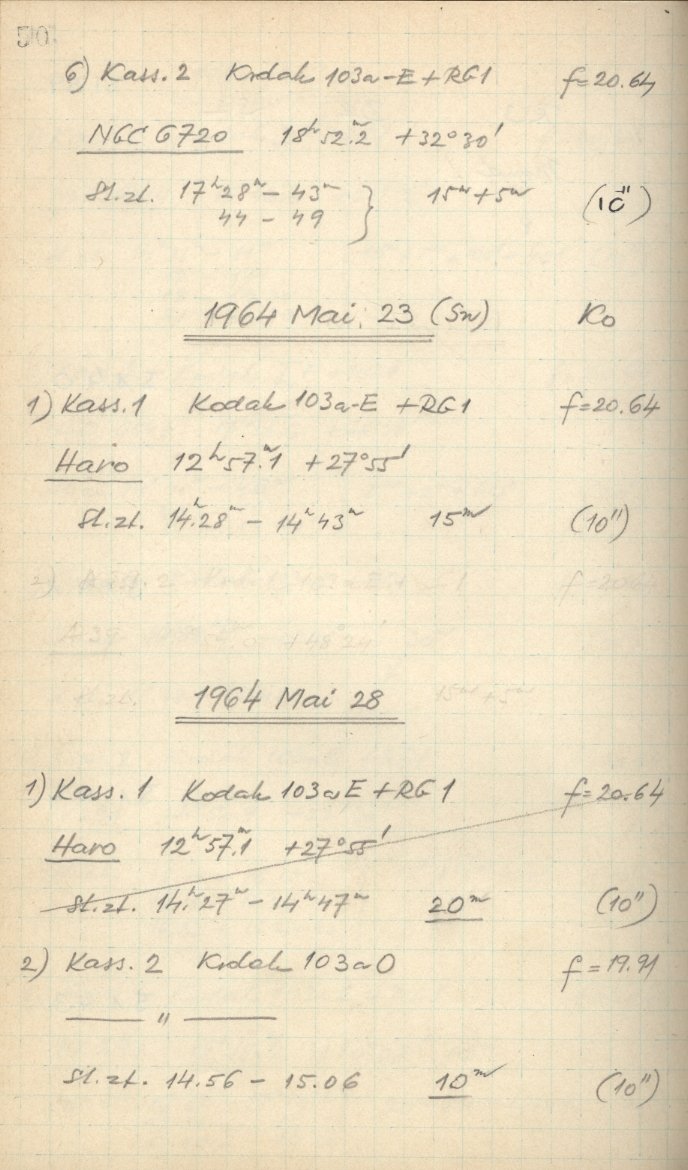 50.
6) Kass. 2 Kodak 103a-E + RG1 f=20.64
NGC 6720 18ʰ52ᵐ.2 +32°30'
St.zt. 17ʰ28ᵐ – 43ᵐ } 15ᵐ+5ᵐ (10")
44 – 49
1964 Mai. 23 (Sn) Ko
1) Kass. 1 Kodak 103a-E + RG1 f=20.64
Haro 12ʰ57ᵐ.1 +27°55'
St.zt. 14ʰ.28ᵐ – 14ʰ43ᵐ 15ᵐ (10")
2) Kass. 2 Kodak 103a-E + RG1 f=20.64
+48°24'
St.zt. 15ᵐ+5ᵐ
1964 Mai 28
1) Kass. 1 Kodak 103aE + RG1 f=20.64
Haro 12ʰ57ᵐ.1 +27°55'
St.zt. 14ʰ.27ᵐ – 14ʰ47ᵐ 20ᵐ (10")
2) Kass. 2 Kodak 103aO f=19.91
— " —
St.zt. 14.56 – 15.06 10ᵐ (10")